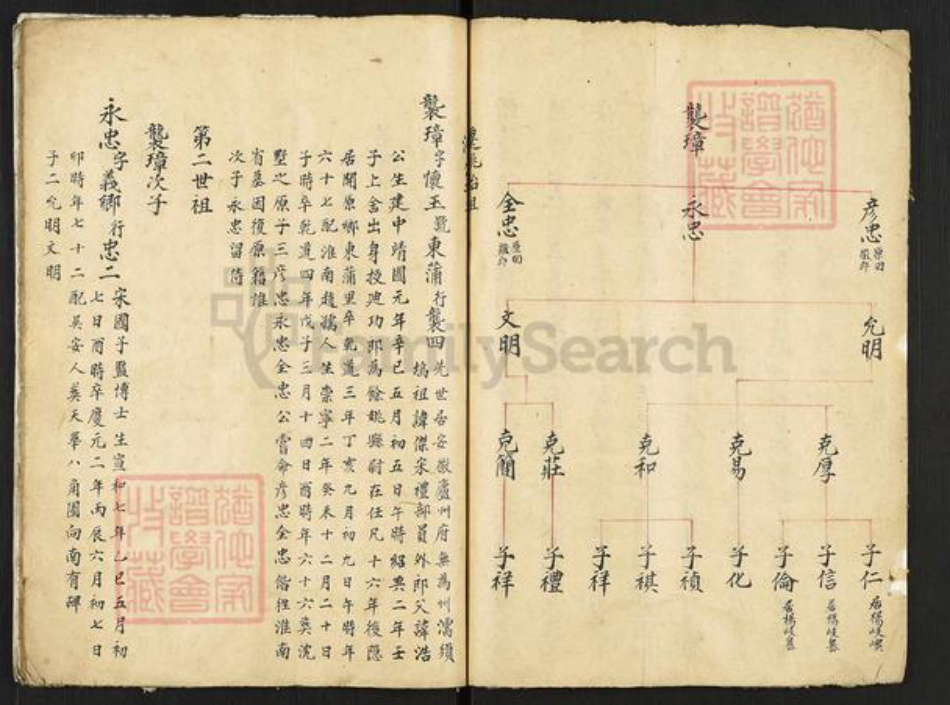 襲璋
彥忠 原回徽郡
永忠
全忠 原回徽郡
允明
文明
克厚
克易
克和
克莊
克簡
子仁
子信
子倫
子化
子禎
子祺
子祥
子禮
子祥
遷姚始祖
襲璋字懷玉號東蒲行襲四 先世居安徽廬州府無為州濡須
塢祖諱傑宋禮部員外郎父諱浩
公生建中靖國元年辛巳五月初五日午時紹興二年壬
子上舍出身授迪功郎為餘姚縣尉在任凡十六年後隱
居開原鄉東蒲里卒乾道三年丁亥九月初九日午時年
六十七配淮南趙孺人生崇寧二年癸未十二月二十日
子時卒乾道四年戊子三月十四日酉時年六十六葬沈
墅之原子三彥忠永忠全忠公嘗命彥忠全忠偕徃淮南
省墓因復原籍惟
次子永忠留侍
第二世祖
襲璋次子
永忠字義鄉行忠二 宋國子監博士生宣和七年乙巳五月初
七日酉時卒慶元二年丙辰六月初七日
卯時年七十二配吳安人葬天華八角圍向南有碑
子二允明文明
猶他家譜學會收藏
猶他家譜學會收藏
FamilySearch